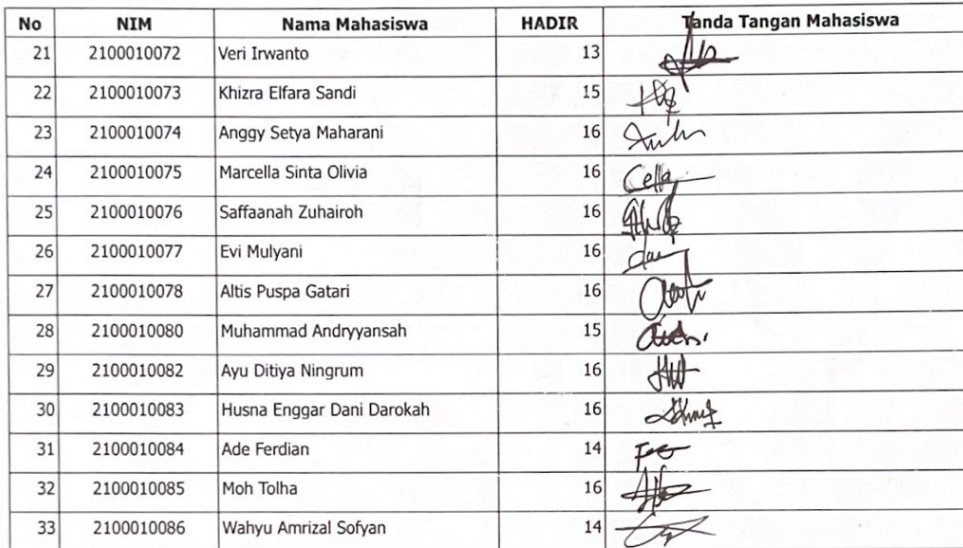 No NIM Nama Mahasiswa HADIR Tanda Tangan Mahasiswa
21 2100010072 Veri Irwanto 13
22 2100010073 Khizra Elfara Sandi 15
23 2100010074 Anggy Setya Maharani 16
24 2100010075 Marcella Sinta Olivia 16 Cella
25 2100010076 Saffaanah Zuhairoh 16
26 2100010077 Evi Mulyani 16
27 2100010078 Altis Puspa Gatari 16
28 2100010080 Muhammad Andryyansah 15
29 2100010082 Ayu Ditiya Ningrum 16
30 2100010083 Husna Enggar Dani Darokah 16
31 2100010084 Ade Ferdian 14
32 2100010085 Moh Tolha 16
33 2100010086 Wahyu Amrizal Sofyan 14